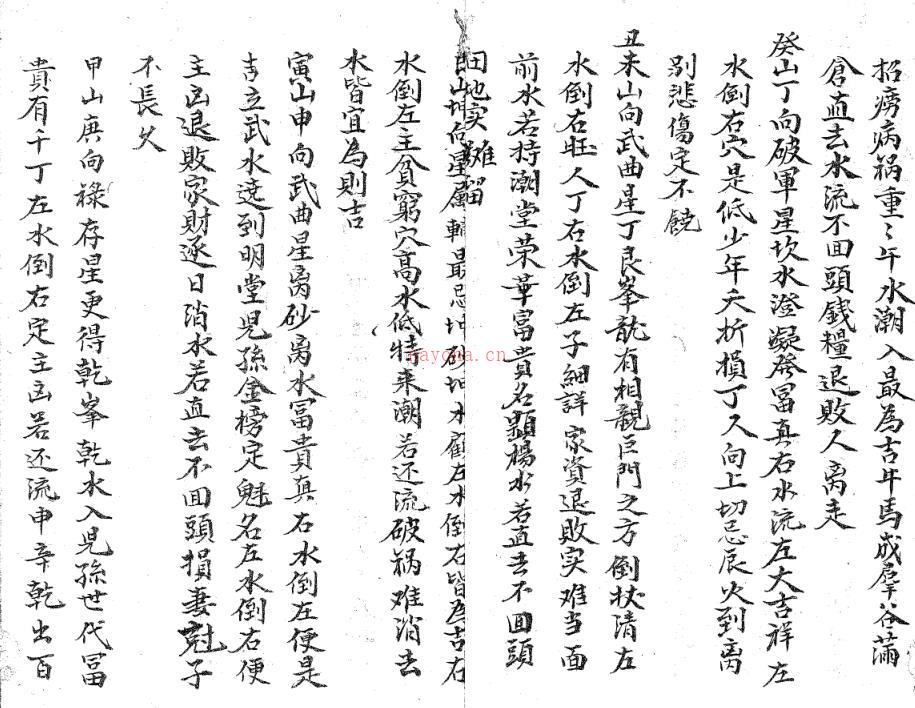 招癆病祸重〻午水潮入最為吉牛馬成羣谷滿
倉直去水流不回頭錢糧退敗人离走
癸山丁向破軍星坎水澄凝發冨真右水流左大吉祥左
水倒右穴是低少年夭折損丁人向上切忌辰火到离
别悲傷定不饒
丑未山向武曲星丁艮峯龍有相親巨門之方倒状清左
水倒右旺人丁右水倒左子細詳家資退敗实难当面
前水若持潮堂荣華富貴名顯楊水若直去不回頭
田地实难留
山坤向星屬輔最忌坤砂坤水顧左水倒右皆為吉右
水倒左主貧窮穴高水低特来潮若还流破祸难消去
水皆宜為則吉
寅山申向武曲星离砂离水冨貴真右水倒左便是
吉立武水遶到明堂兒孫金榜定魁名左水倒右便
主凶退敗家財逐日消水若直去不回頭損妻尅子
不長久
甲山庚向祿存星更得乾峯乾水入兒孫世代冨
貴有千丁左水倒右定主凶若还流申辛乾出百
naycha.cn